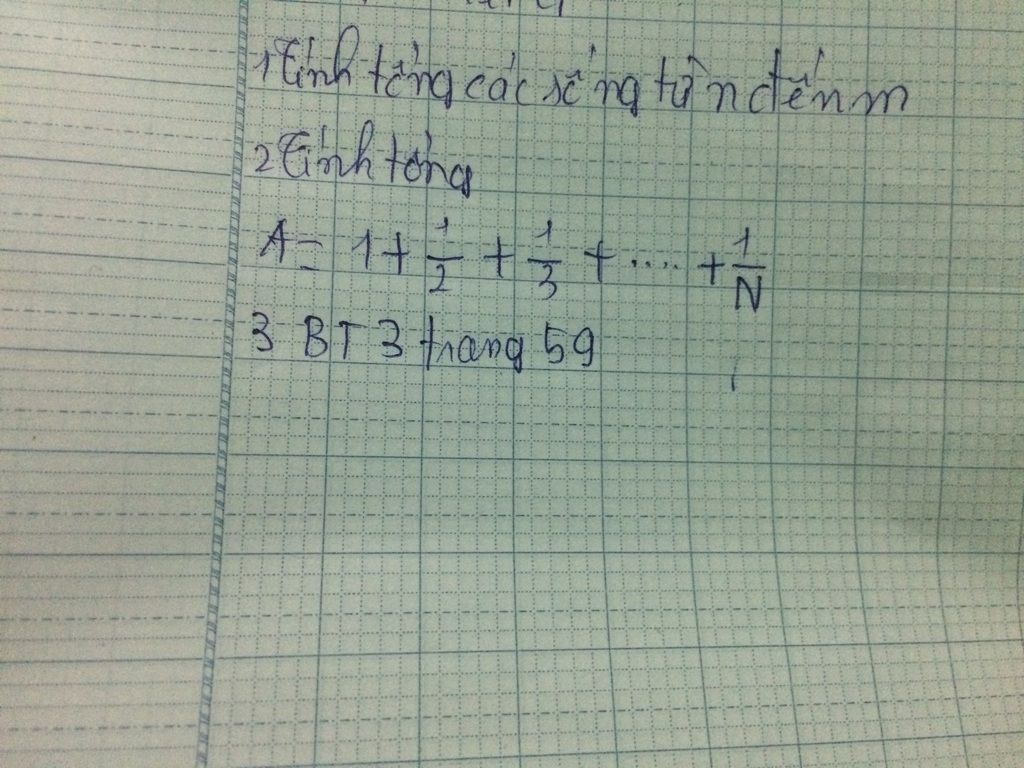 1 Tính tổng các số ng từ n đến m
2 Tính tổng
A = 1 + 1/2 + 1/3 + .... + 1/N
3 BT 3 trang 59